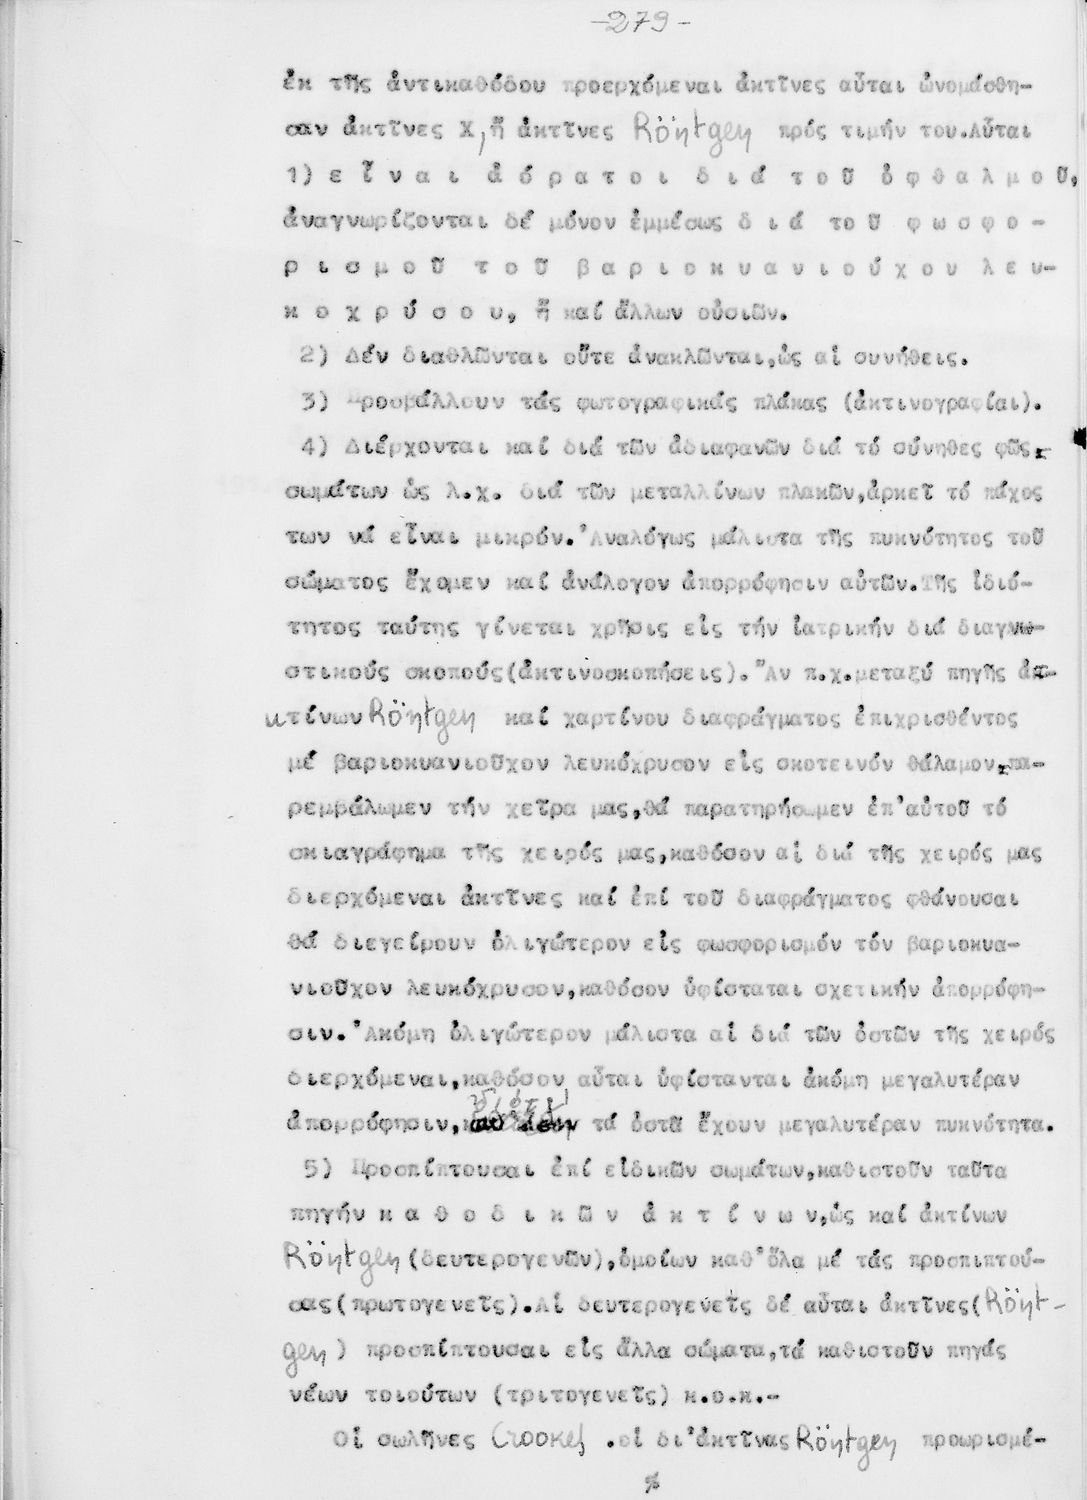 -279-
ἐκ τῆς ἀντικαθόδου προερχόμεναι ἀκτῖνες αὗται ὠνομάσθη-
σαν ἀκτῖνες Χ, ἤ ἀκτῖνες Röntgen πρός τιμήν του. Αὗται
1) ε ἶ ν α ι ἀ ό ρ α τ ο ι δ ι ά τ ο ῦ ὀ φ θ α λ μ ο ῦ,
ἀναγνωρίζονται δέ μόνον ἐμμέσως δ ι ά το ῦ φ ω σ φ ο -
ρ ι σ μ ο ῦ τ ο ῦ β α ρ ι ο κ υ α ν ι ο ύ χ ο υ λ ε υ-
κ ο χ ρ ύ σ ο υ, ἤ καί ἄλλων οὐσιῶν.
2) Δέν διαθλῶνται οὔτε ἀνακλῶνται,ὡς αἱ συνήθεις.
3) Προσβάλλουν τάς φωτογραφικάς πλάκας (ἀκτινογραφίαι).
4) Διέρχονται καί διά τῶν ἀδιαφανῶν διά τό σύνηθες φῶς
σωμάτων ὡς λ.χ. διά τῶν μεταλλίνων πλακῶν,ἀρκεῖ τό πάχος
των νά εἶναι μικρόν. Ἀναλόγως μάλιστα τῆς πυκνότητος τοῦ
σώματος ἔχομεν καί ἀνάλογον ἀπορρόφησιν αὐτῶν.Τῆς ἰδιό-
τητος ταύτης γίνεται χρῆσις εἰς τήν ἰατρικήν διά διαγνω-
στικούς σκοπούς(ἀκτινοσκοπήσεις). Ἄν π.χ.μεταξύ πηγῆς ἀ-
κτίνων Röntgen καί χαρτίνου διαφράγματος ἐπιχρισθέντος
μέ βαριοκυανιοῦχον λευκόχρυσον εἰς σκοτεινόν θάλαμον, πα-
ρεμβάλωμεν τήν χεῖρα μας,θά παρατηρήσωμεν ἐπ'αὐτοῦ τό
σκιαγράφημα τῆς χειρός μας,καθόσον αἱ διά τῆς χειρός μας
διερχόμεναι ἀκτῖνες καί ἐπί τοῦ διαφράγματος φθάνουσαι
θά διεγείρουν ὀλιγώτερον εἰς φωσφορισμόν τόν βαριοκυα-
νιοῦχον λευκόχρυσον,καθόσον ὑφίσταται σχετικήν ἀπορρόφη-
σιν. Ἀκόμη ὀλιγώτερον μάλιστα αἱ διά τῶν ὀστῶν τῆς χειρός
διερχόμεναι,καθόσον αὗται ὑφίστανται ἀκόμη μεγαλυτέραν
ἀπορρόφησιν, διότι τά ὀστᾶ ἔχουν μεγαλυτέραν πυκνότητα.
5) Προσπίπτουσαι ἐπί εἰδικῶν σωμάτων,καθιστοῦν ταῦτα
πηγήν κ α θ ο δ ι κ ῶ ν ἀ κ τ ί ν ω ν,ὡς καί ἀκτίνων
Röntgen (δευτερογενῶν),ὁμοίων καθ'ὅλα μέ τάς προσπιπτού-
σας(πρωτογενεῖς).Αἱ δευτερογενεῖς δέ αὗται ἀκτῖνες(Rönt-
gen) προσπίπτουσαι εἰς ἄλλα σώματα,τά καθιστοῦν πηγάς
νέων τοιούτων (τριτογενεῖς) κ.ο.κ.-
Οἱ σωλῆνες Crookes .οἱ δι'ἀκτῖνας Röntgen προωρισμέ-
%